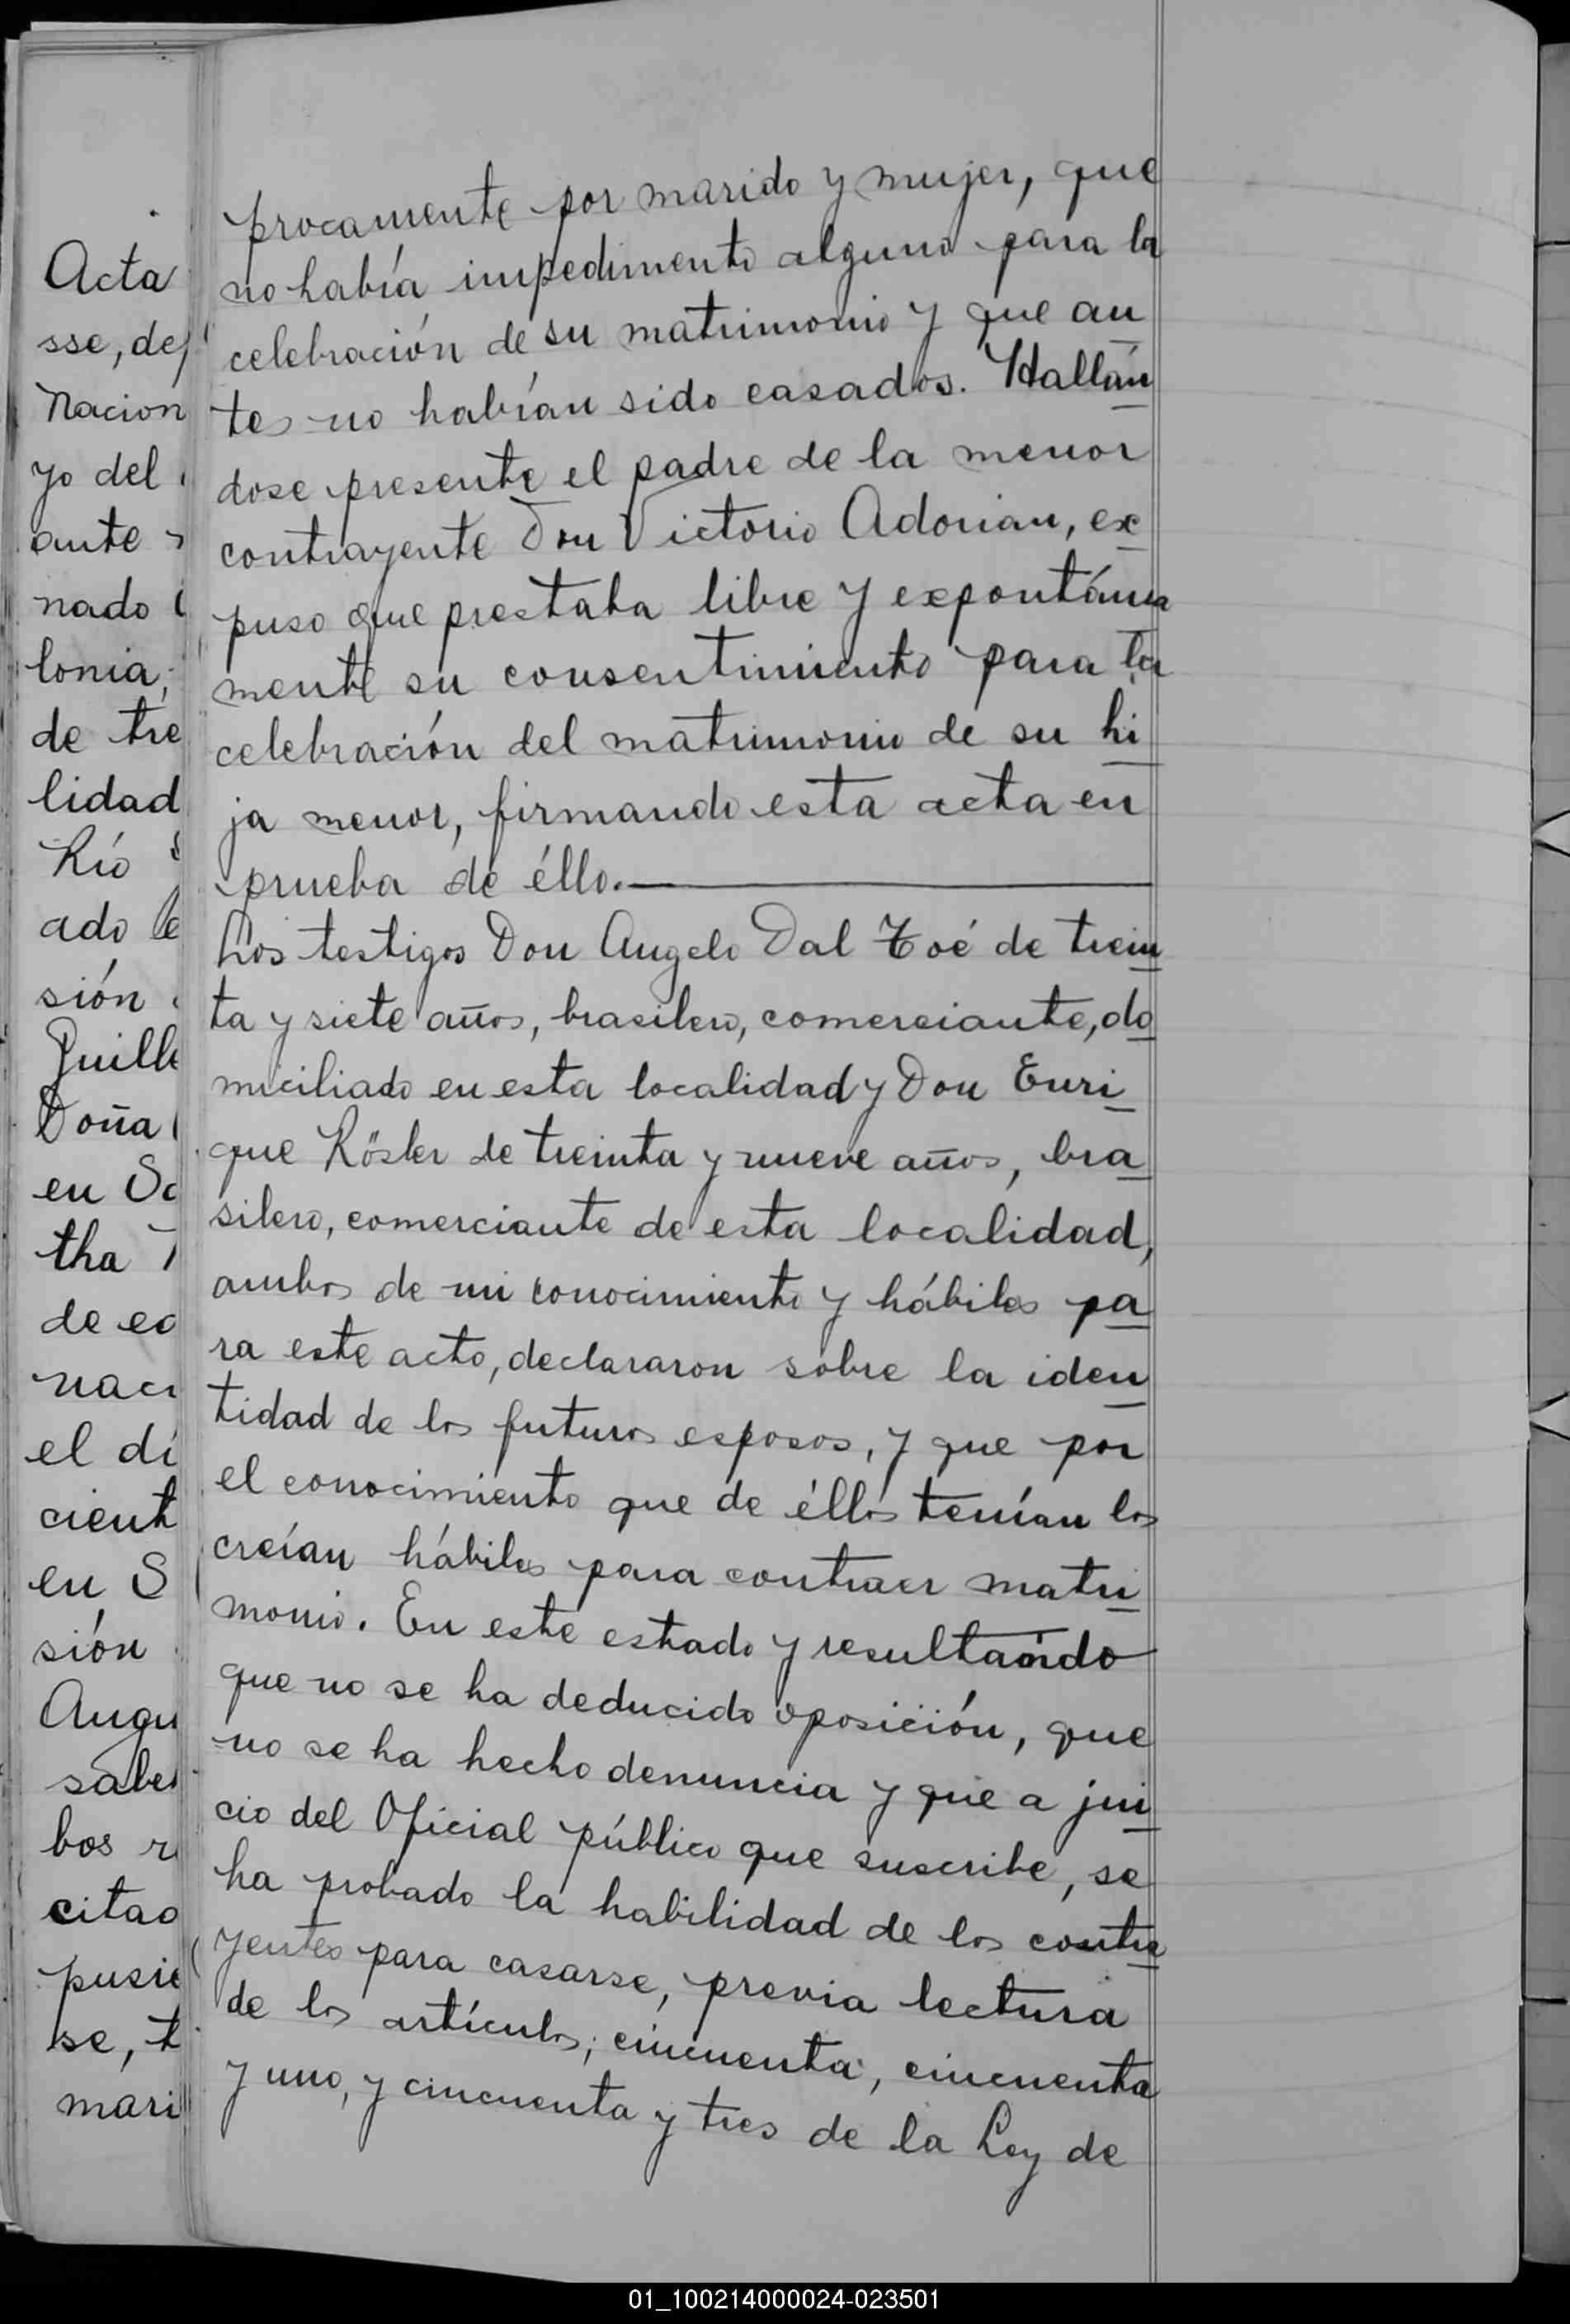 Acta
sse, de
Nacion
yo del
ante
nado
lonia,
de tre
lidad
Río
ado
sión
Guille
Doña
en Sa
tha
de ed
naci
el di
cient
en S
sión
Augu
saber
bos r
citad
pusie
se, t
mari
procamente por marido y mujer, que
no había impedimento alguno para la
celebración de su matrimonio y que an
tes no habían sido casados. Hallán
dose presente el padre de la menor
contrayente Don Victorio Adorian, ex
puso que prestaba libre y expontánea
mente su consentimiento para la
celebración del matrimonio de su hi
ja menor, firmando esta acta en
prueba de éllo.
Los testigos Don Angelo Dal Toé de trein
ta y siete años, brasilero, comerciante, do
miciliado en esta localidad y Don Enri
que Rösler de treinta y nueve años, bra
silero, comerciante de esta localidad,
ambos de mi conocimiento y hábiles pa
ra este acto, declararon sobre la iden
tidad de los futuros esposos, y que por
el conocimiento que de éllos tenían los
creían hábiles para contraer matri
monio. En este estado y resultando
que no se ha deducido oposición, que
no se ha hecho denuncia y que a jui
cio del Oficial público que suscribe, se
ha probado la habilidad de los contra
yentes para casarse, previa lectura
de los artículos; cincuenta, cincuenta
y uno, y cincuenta y tres de la Ley de
01_100214000024-023501